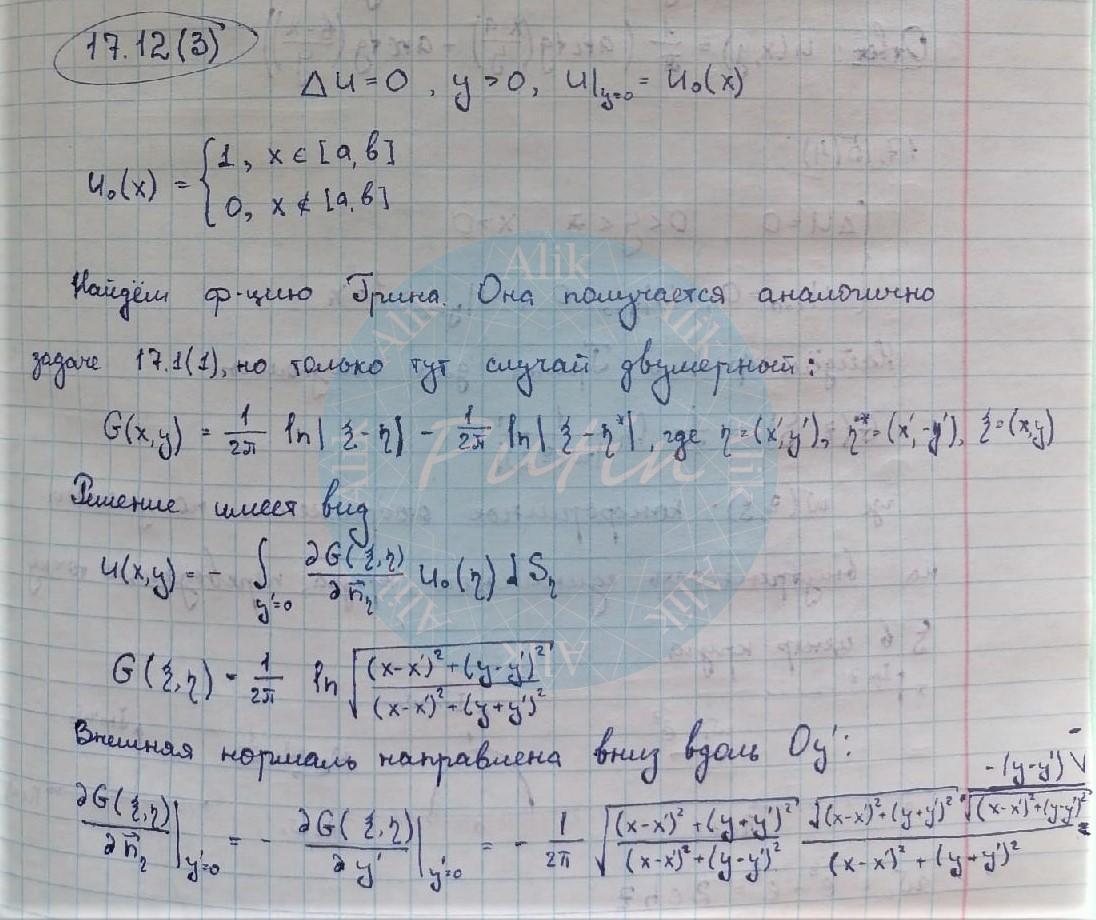 17.12(3)
Δu=0, y>0, u|_{y=0} = u₀(x)
u₀(x) = { 1, x ∈ [a, b]
0, x ∉ [a, b]
Найдём ф-цию Грина. Она получается аналогично
задаче 17.1(1), но только тут случай двумерный:
G(x,y) = 1/2π ln|ξ-η| - 1/2π ln|ξ-η*|, где η=(x',y'), η*=(x',-y'), ξ=(x,y)
Решение имеет вид
u(x,y) = - ∫_{y'=0} ∂G(ξ,η)/∂n⃗_η u₀(η) dS_η
G(ξ,η) = 1/2π ln √((x-x')²+(y-y')²)/((x-x')²+(y+y')²)
Внешняя нормаль направлена вниз вдоль Oy':
∂G(ξ,η)/∂n⃗_η |_{y'=0} = - ∂G(ξ,η)/∂y' |_{y'=0} = - 1/2π √((x-x')²+(y+y')²)/((x-x')²+(y-y')²)
Alik
Alik
Alik
Alik
Alik
Alik
Alik
Alik
Putin